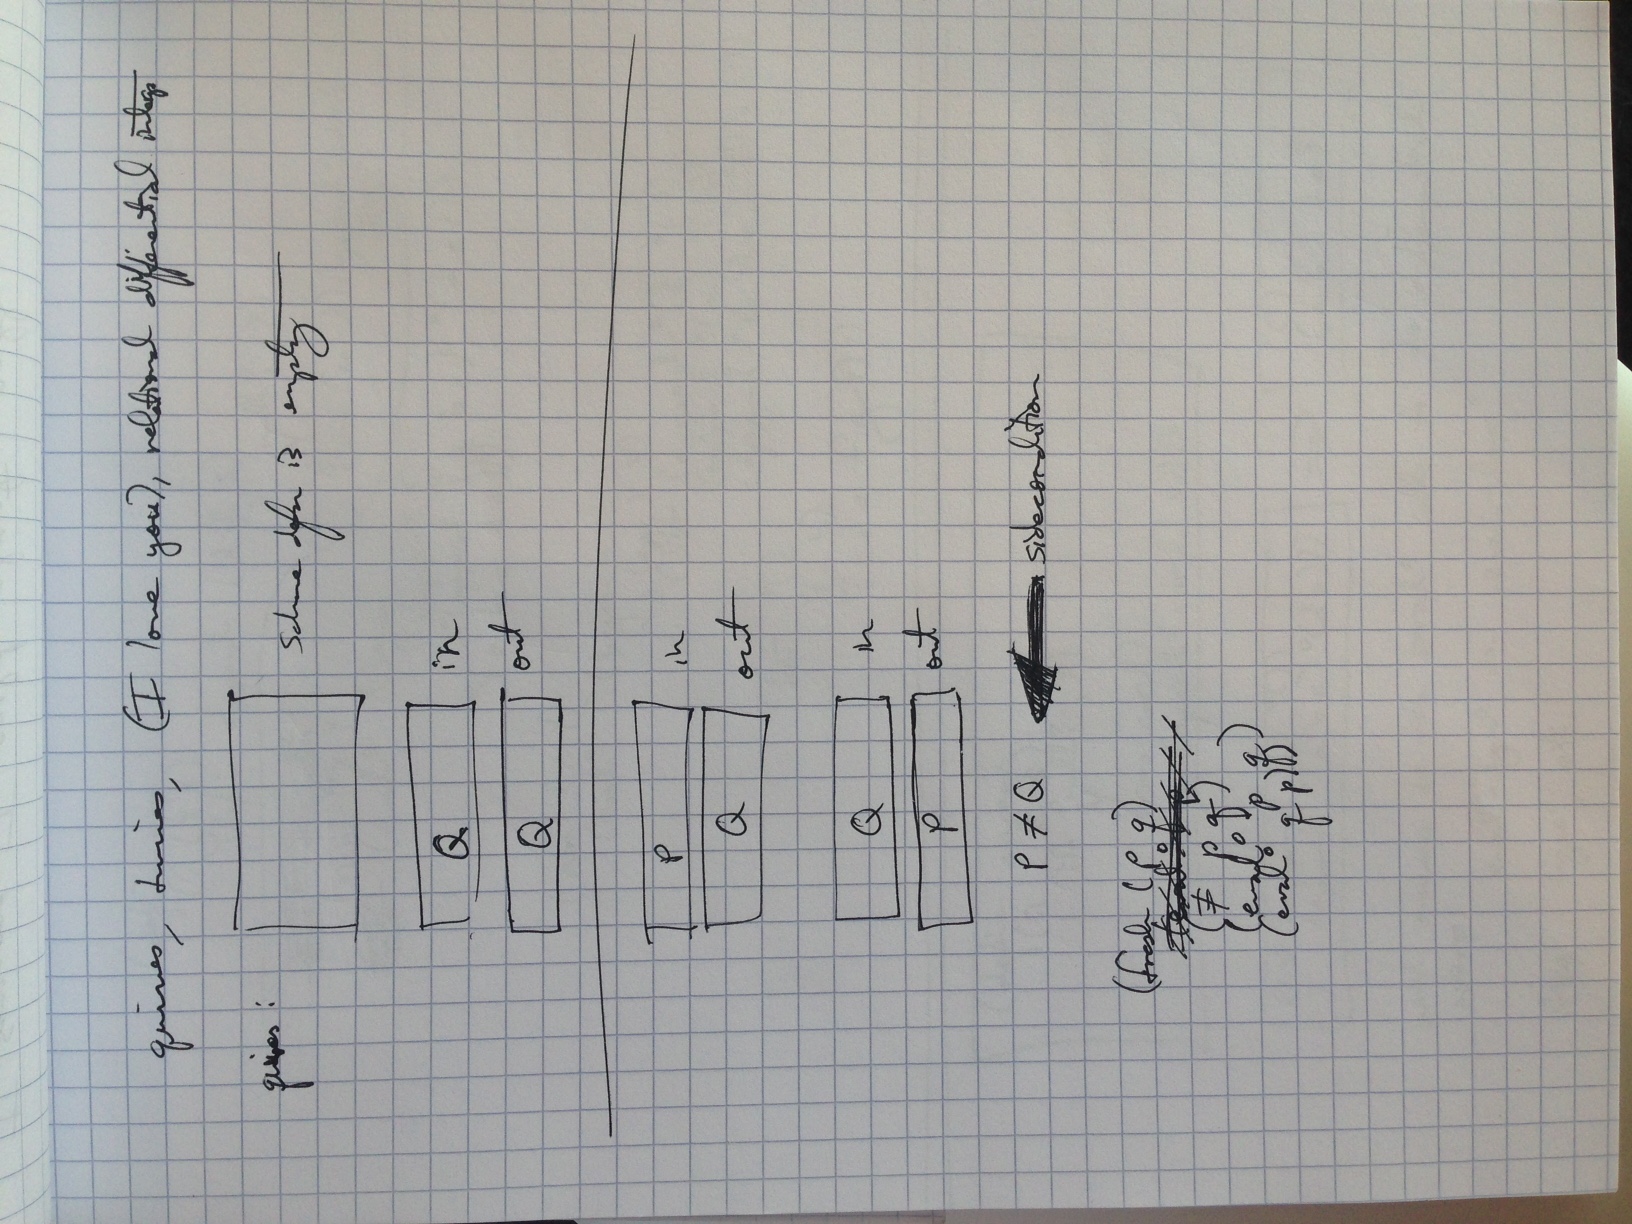 quines, twines, (I love you), relational differential interps
quines:
Scheme defn is empty
Q in
Q out
P in
Q out
Q in
P out
P ≠ Q sidecondition
(fresh (p q)
(≠ p q)
(eval° p q)
(eval° q p))